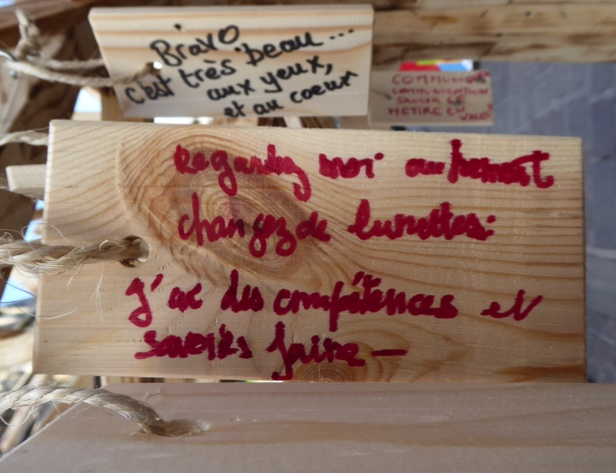 Bravo
c'est très beau...
aux yeux,
et au coeur
COMMUNIQUER
COMMUNICATION
SAVOIR SE
METTRE EN
Regardez moi autrement
changez de lunettes:
J'ai des compétences et
savoirs faire —